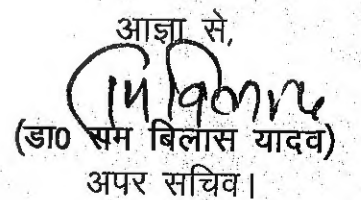 आज्ञा से,
(डा0 राम बिलास यादव)
अपर सचिव।